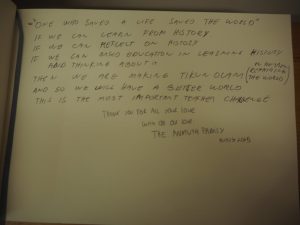 "ONE WHO SAVED A LIFE SAVED THE WORLD"
IF WE CAN LEARN FROM HISTORY
IF WE CAN REFLECT ON HISTORY
IF WE CAN EDUCATION IN LEARNING HISTORY
AND THINKING ABOUT IT
THEN WE ARE MAKING TIKUN OLAM (REPAIRING THE WORLD)
AND SO WE WILL HAVE A BETTER WORLD
THIS IS THE MOST IMPORTANT TEACHER CHALLENGE
THANK YOU FOR ALL YOUR LOVE
WITH ALL OUR LOVE
THE FAMILY